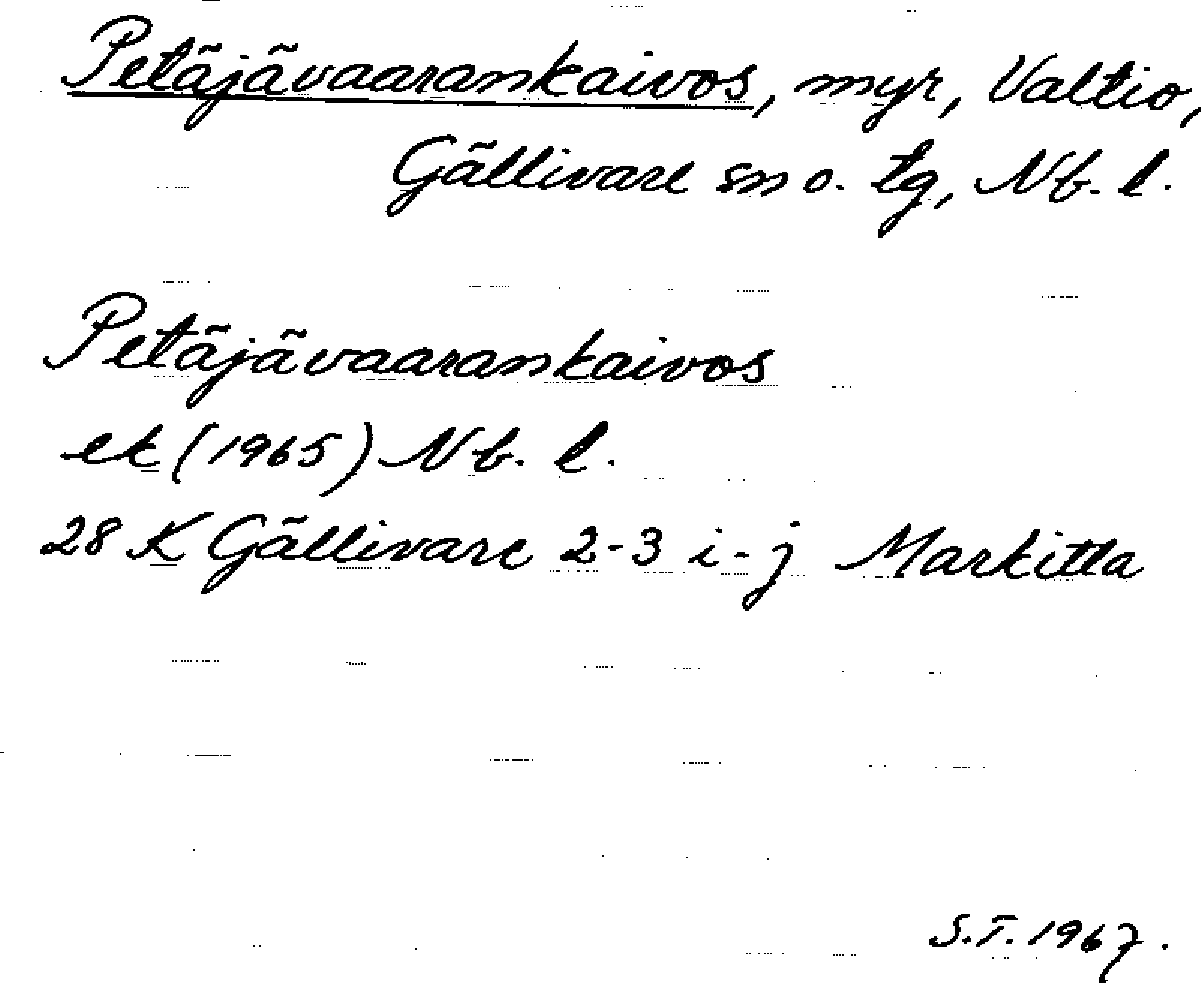 Petäjävaarankaivos, myr, Valtio,
Gällivare sn o. tg, Nb. l.
Petäjävaarankaivos
ek (1965) Nb. l.
28 K Gällivare 2-3 i-j Markitta
S.T. 1967.